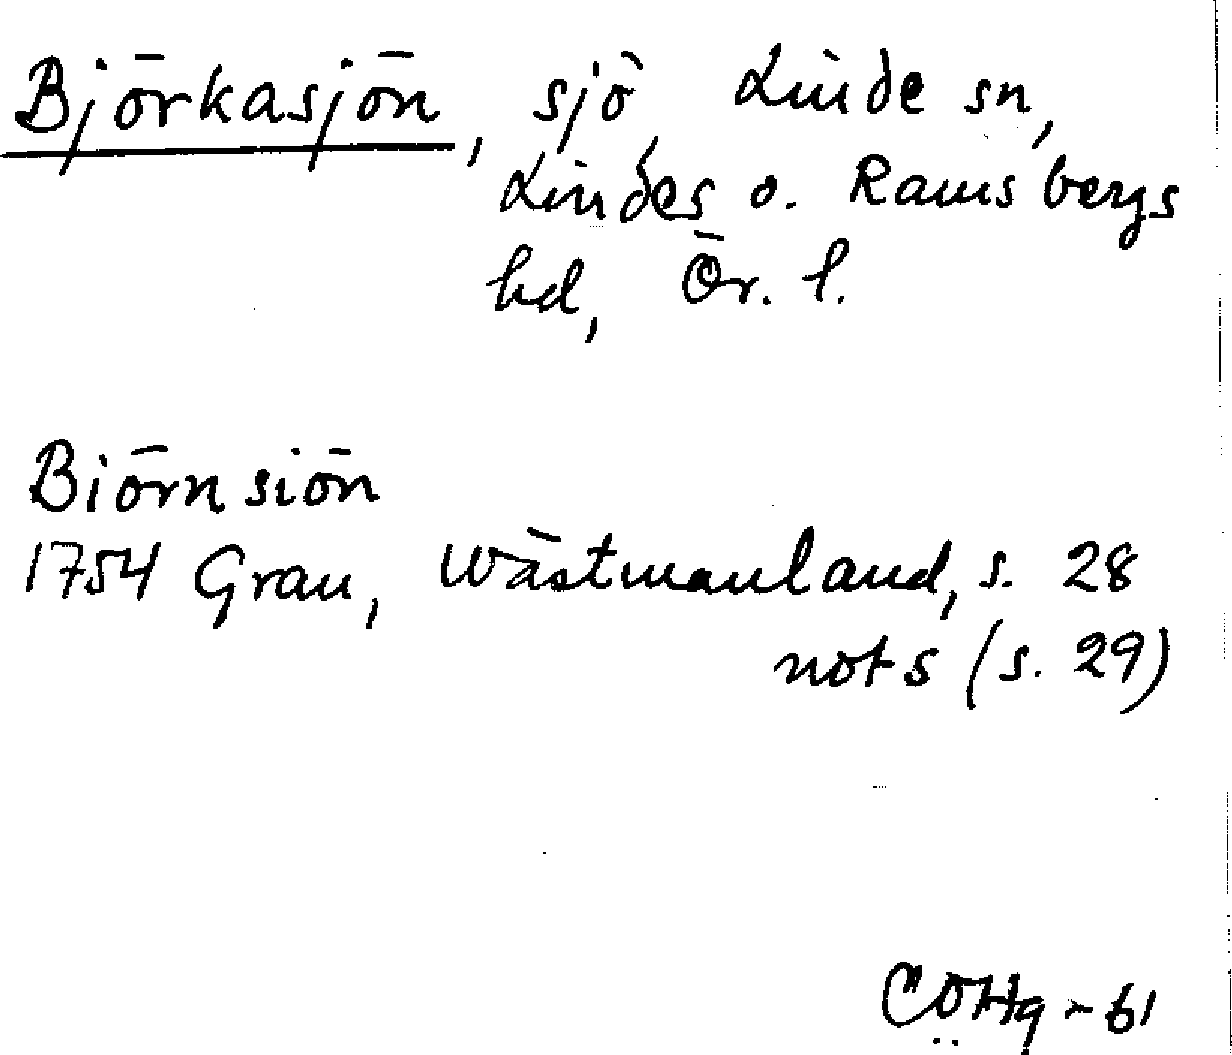 Björkasjön, sjö, Linde sn,
Lindes o. Ramsbergs
hd, Ör. l.
Biörnsiön
1754 Grau, Wästmanland, s. 28
not s (s. 29)
COHg-61